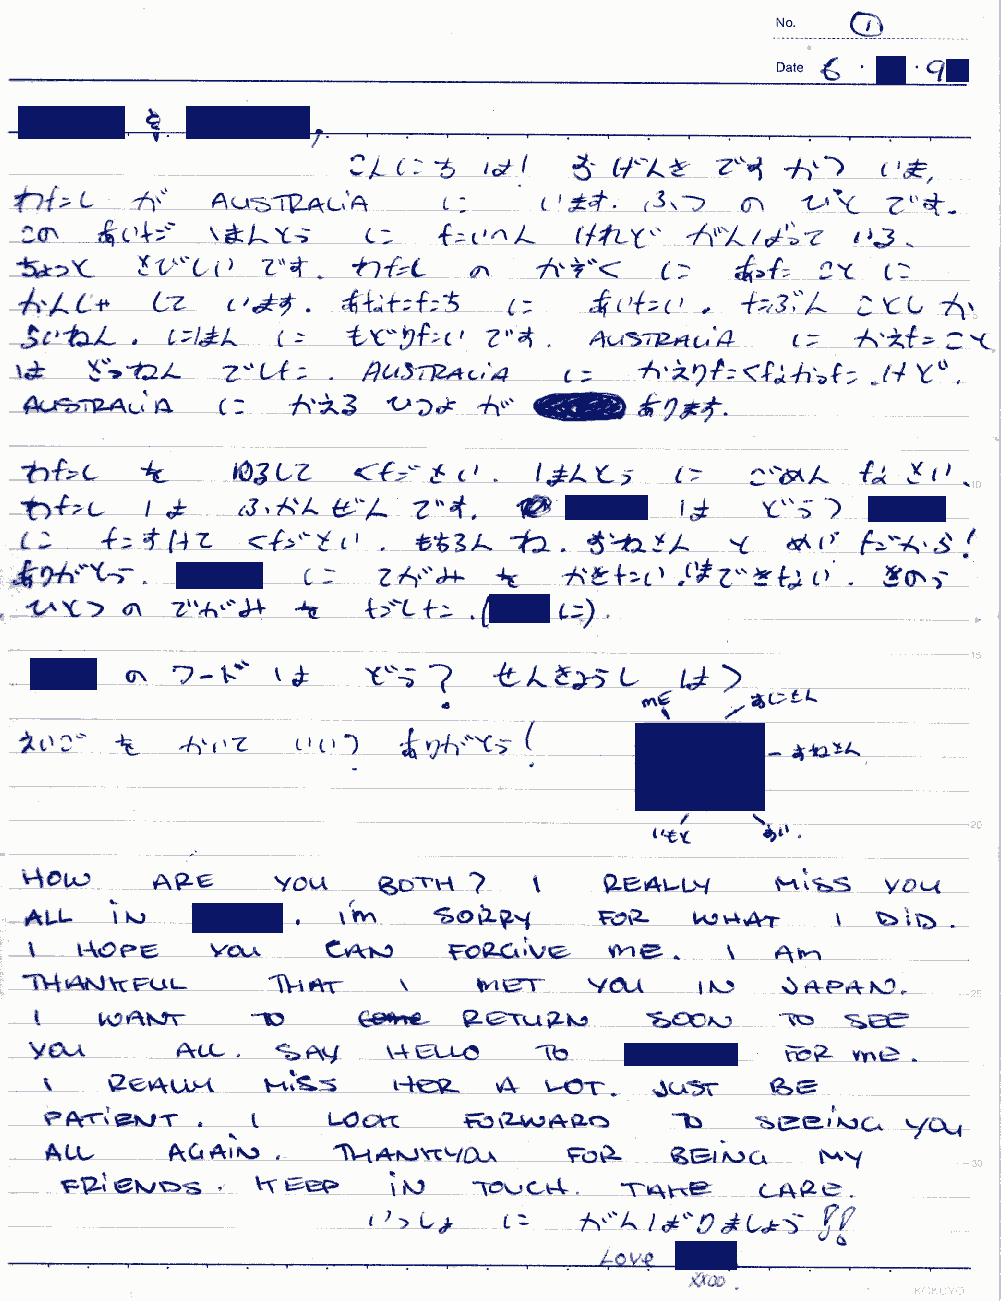 No. ①
Date 6 · · 9
&
,
こんにちは! おげんきですか? いま,
わたしが AUSTRALIA に います. ふつうのひとです.
このあいだ ほんとうに たいへん けれど がんばっている.
ちょっと さびしいです. わたしの かぞくに あったことに
かんしゃしています. あなたたちに あいたい. たぶん ことしか
らいねん. にほんに もどりたいです. AUSTRALIA に かえたこと
は ざつねんでした. AUSTRALIA に かえりたくなかった. けど.
AUSTRALIA に かえる ひつよが あります.
わたしを ゆるして ください. ほんとうに ごめんなさい.
わたしは ふかんぜんです. は どう?
に たすけて ください. もちろんね. おねさんと めい だから!
ありがとう. に てがみを かきたい. まだできない. きのう
ひとつの てがみを だした. ( に).
のワードは どう? せんきょうしは?
ME
おにさん
えいごを かいて いい? ありがとう!
おねさん
いもと
めい.
HOW ARE YOU BOTH? I REALLY MISS YOU
ALL IN . I'M SORRY FOR WHAT I DID.
I HOPE YOU CAN FORGIVE ME. I AM
THANKFUL THAT I MET YOU IN JAPAN.
I WANT TO come RETURN SOON TO SEE
YOU ALL. SAY HELLO TO FOR ME.
I REALLY MISS HER A LOT. JUST BE
PATIENT. I LOOK FORWARD TO SEEING YOU
ALL AGAIN. THANKYOU FOR BEING MY
FRIENDS. KEEP IN TOUCH. TAKE CARE.
いっしょに がんばりましょう!!
Love
xxoo.
KOKUYO